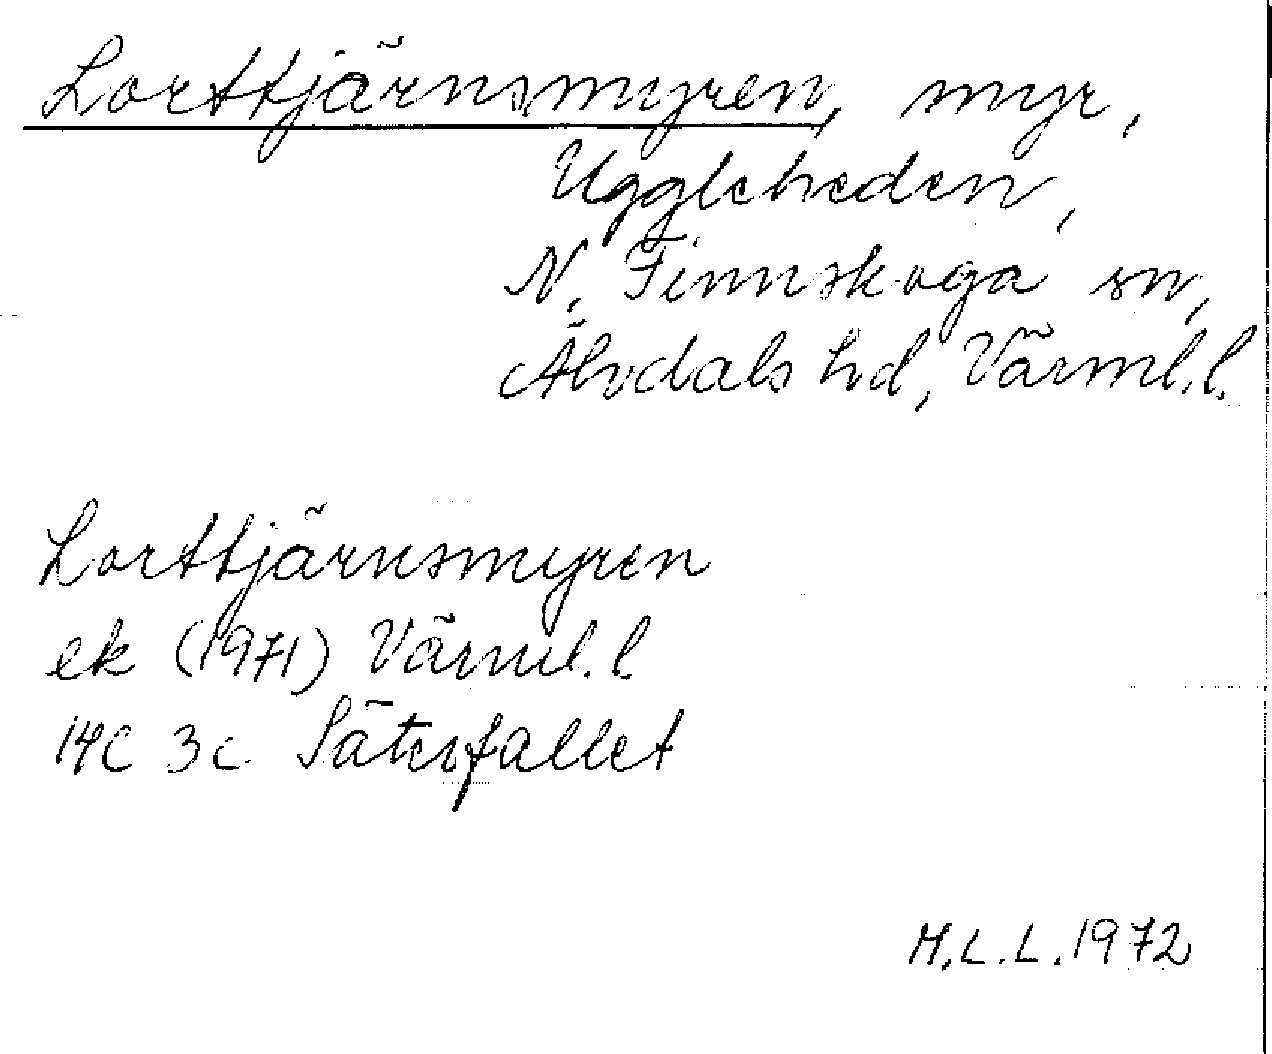 Lorttjärnsmyren, myr,
Uggleheden,
N. Finnskoga sn,
Älvdals hd, Värml.l.
Lorttjärnsmyren
ek (1971) Värml.l
14C 3c Säterfallet
M.L.L.1972